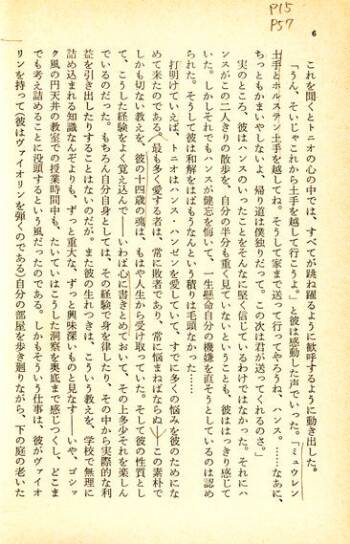 P15
P57
6
これを聞くとトニオの心の中では、すべてが跳ね躍るように歓呼するように動き出した。
「うん、そいじゃこれから土手を越して行こうよ。」と彼は感動した声でいった。「ミュウレン
土手とホルステン土手を越してね。そうして家まで送って行ってやろうね、ハンス。……なあに、
ちっともかまいやしないよ、帰り道は僕独りだって。この次は君が送ってくれるのさ。」
実のところ、彼はハンスのいったことをそんなに堅く信じているわけではなかった。それにハ
ンスがこの二人きりの散歩を、自分の半分も重く見ていないということも、彼ははっきり感じて
いた。しかしそれでもハンスが健忘を悔いて、一生懸命自分の機嫌を直そうとしているのは認め
られた。そうして彼は和解をはばもうなんという積りは毛頭なかった……
打明けていえば、トニオはハンス・ハンゼンを愛していて、すでに多くの悩みを彼のためにな
めて来たのである。最も多く愛する者は、常に敗者であり、常に悩まねばならぬ――この素朴で
しかも切ない教えを、彼の十四歳の魂は、もはや人生から受け取っていた。そして彼の性質とし
て、こうした経験をよく覚え込んで――いわば心に書きとめておいて、その上多少それを楽しん
でいるのだった。もちろん自分自身としては、その経験で身を律したり、その中から実際的な利
益を引き出したりすることはないのだが。また彼の生れつきは、こういう教えを、学校で無理に
詰め込まれる知識なんぞよりも、ずっと重大な、ずっと興味深いものと見なす――いや、ゴシッ
ク風の円天井の教室での授業時間中も、たいていはこうした洞察を奥底まで感じつくし、どこま
でも考え詰めることに没頭するという風だったのである。しかもそういう仕事は、彼がヴァイオ
リンを持って(彼はヴァイオリンを弾くのである)自分の部屋を歩き廻りながら、下の庭の老いた